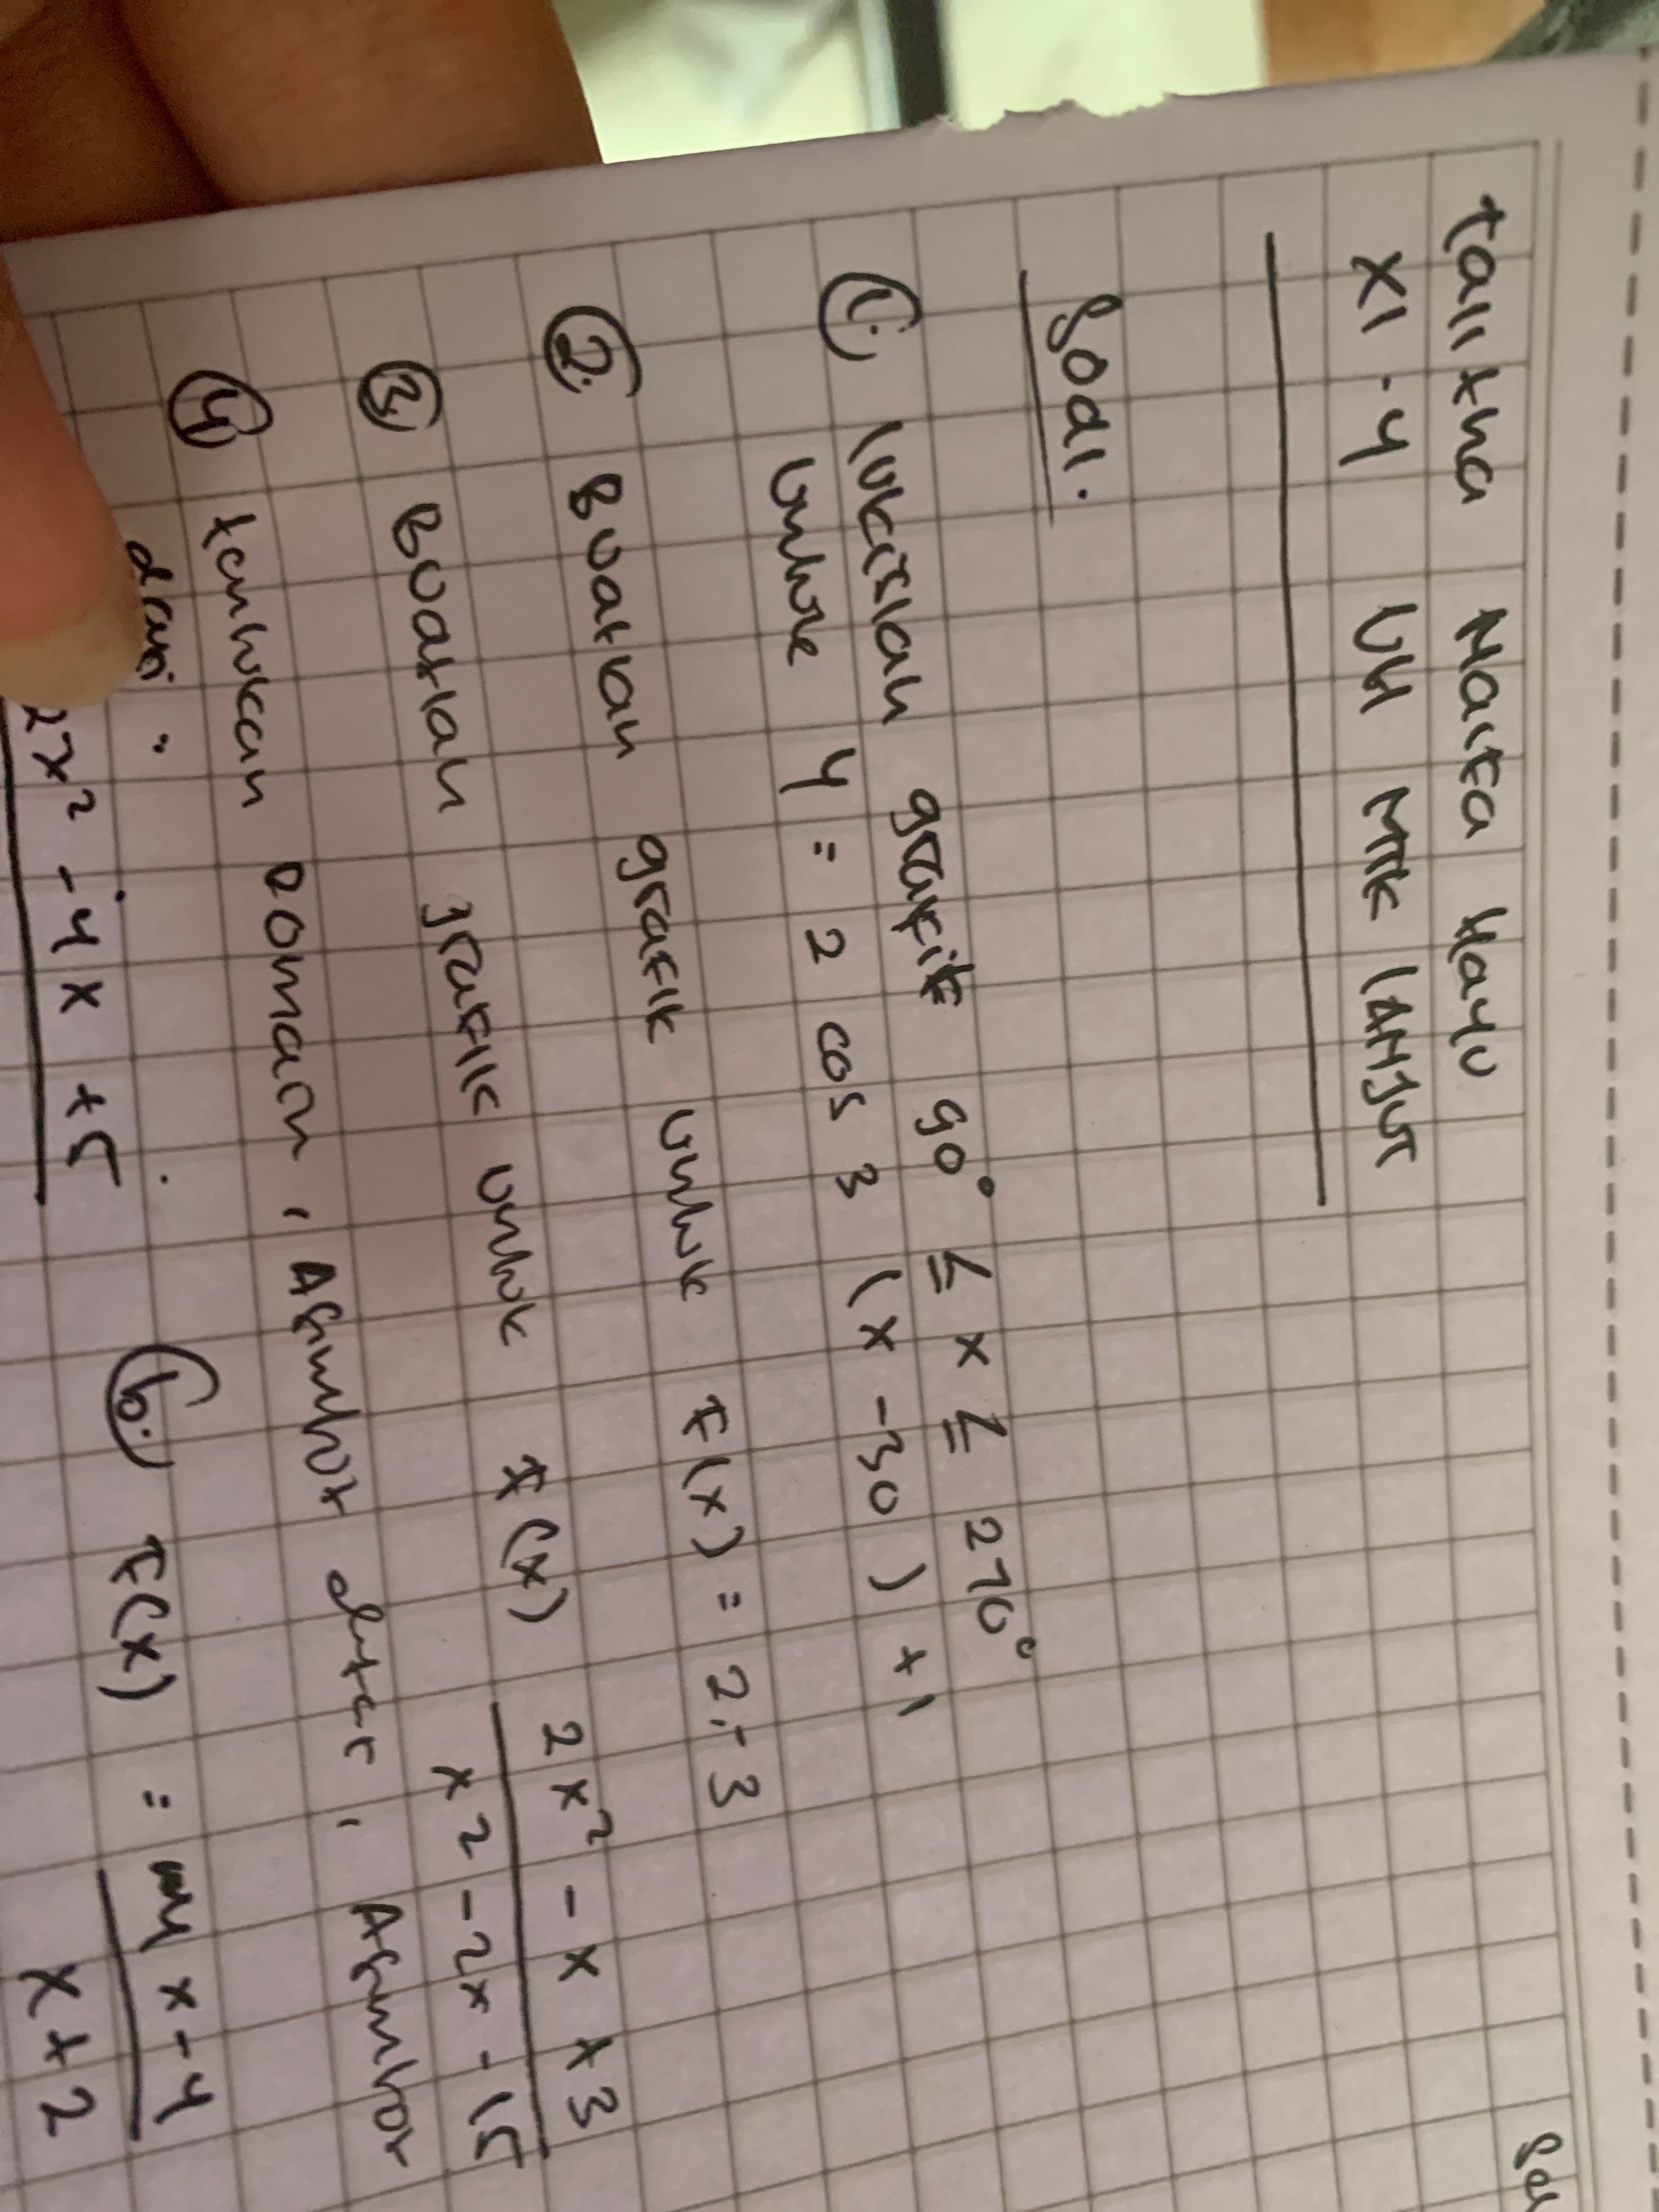 Talitha Naifa Hayu
XI - 4 UH MTK LANJUT
Soal.
1. lukislah grafik 90° ≤ x ≤ 270°
untuk y = 2 cos 3 (x - 30) + 1
2. Buatlah grafik untuk f(x) =
3. Buatlah grafik untuk f(x) 2x² - x + 3
x² - 2x - 15
4. tentukan Domain, Asimtot datar, Asimtot
dari :
2x² - 4x + 5
b. f(x) = x - 4
x + 2